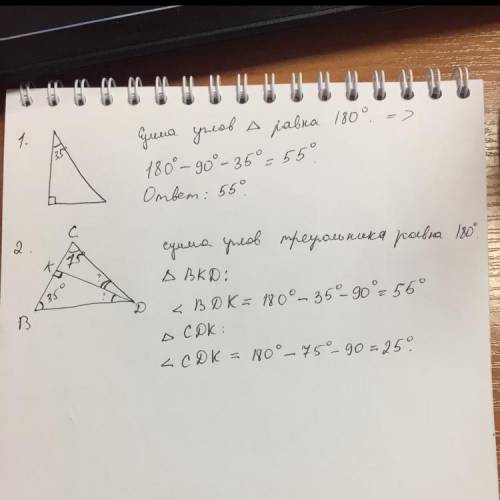 1.
35
Сума углов △ равна 180°. =>
180° - 90° - 35° = 55°.
Ответ: 55°.
2.
C
75
K
?
?
35°
B
D
сума углов треугольника равна 180°.
△ BKD:
∠ BDK = 180° - 35° - 90° = 55°
△ CDK:
∠ CDK = 180° - 75° - 90 = 25°.